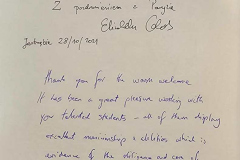 Z pozdrowieniem z Paryża
Jastrzębie 28/10/2021
Thank you for the warm welcome
It has been a great pleasure working with
you talented students - all of them display
excellent musicianship &
evidence of the diligence and care of